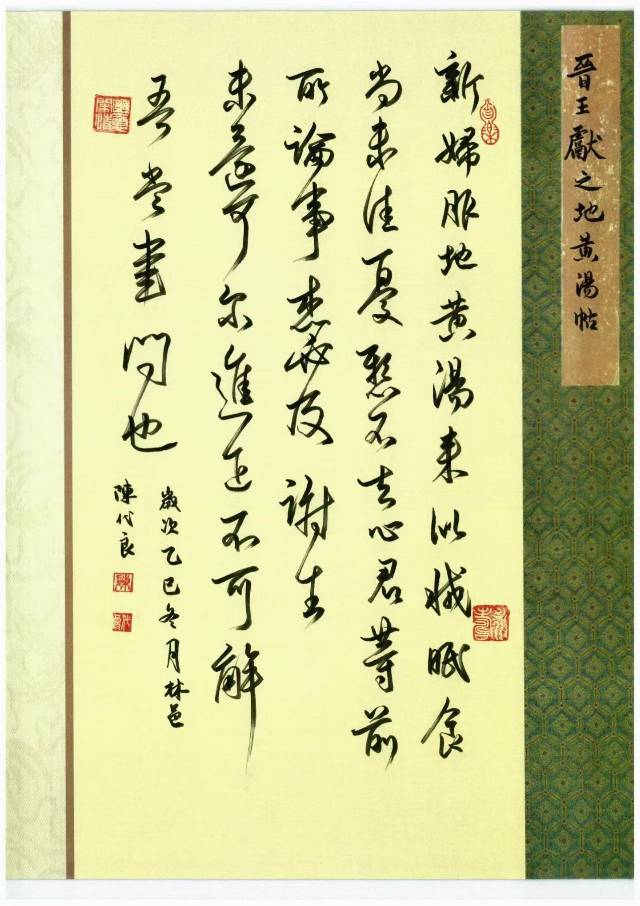 晉王獻之地黃湯帖
新婦服地黃湯來似減眠食
尚未佳憂懸不去心君等前
所論事想必及謝生
未還可尔進退不可解
吾當書問也
歲次乙巳冬月林邑
陳代良